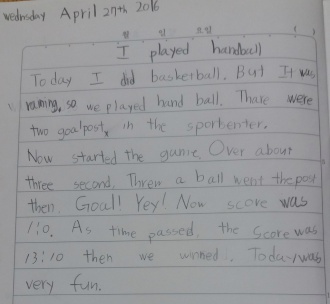 Wednesday April 27th 2016
월 일 요일 ( )
I played handball
Today I did basketball. But It was
raining, so we played hand ball. Thare were
two goalpost, in the sporbenter.
Now started the game. Over about
three second, Threw a ball went the post
then, Goal! Yey! Now score was
1:0. As time passed, the Score was
13:10 then we winned. Today was
very fun.